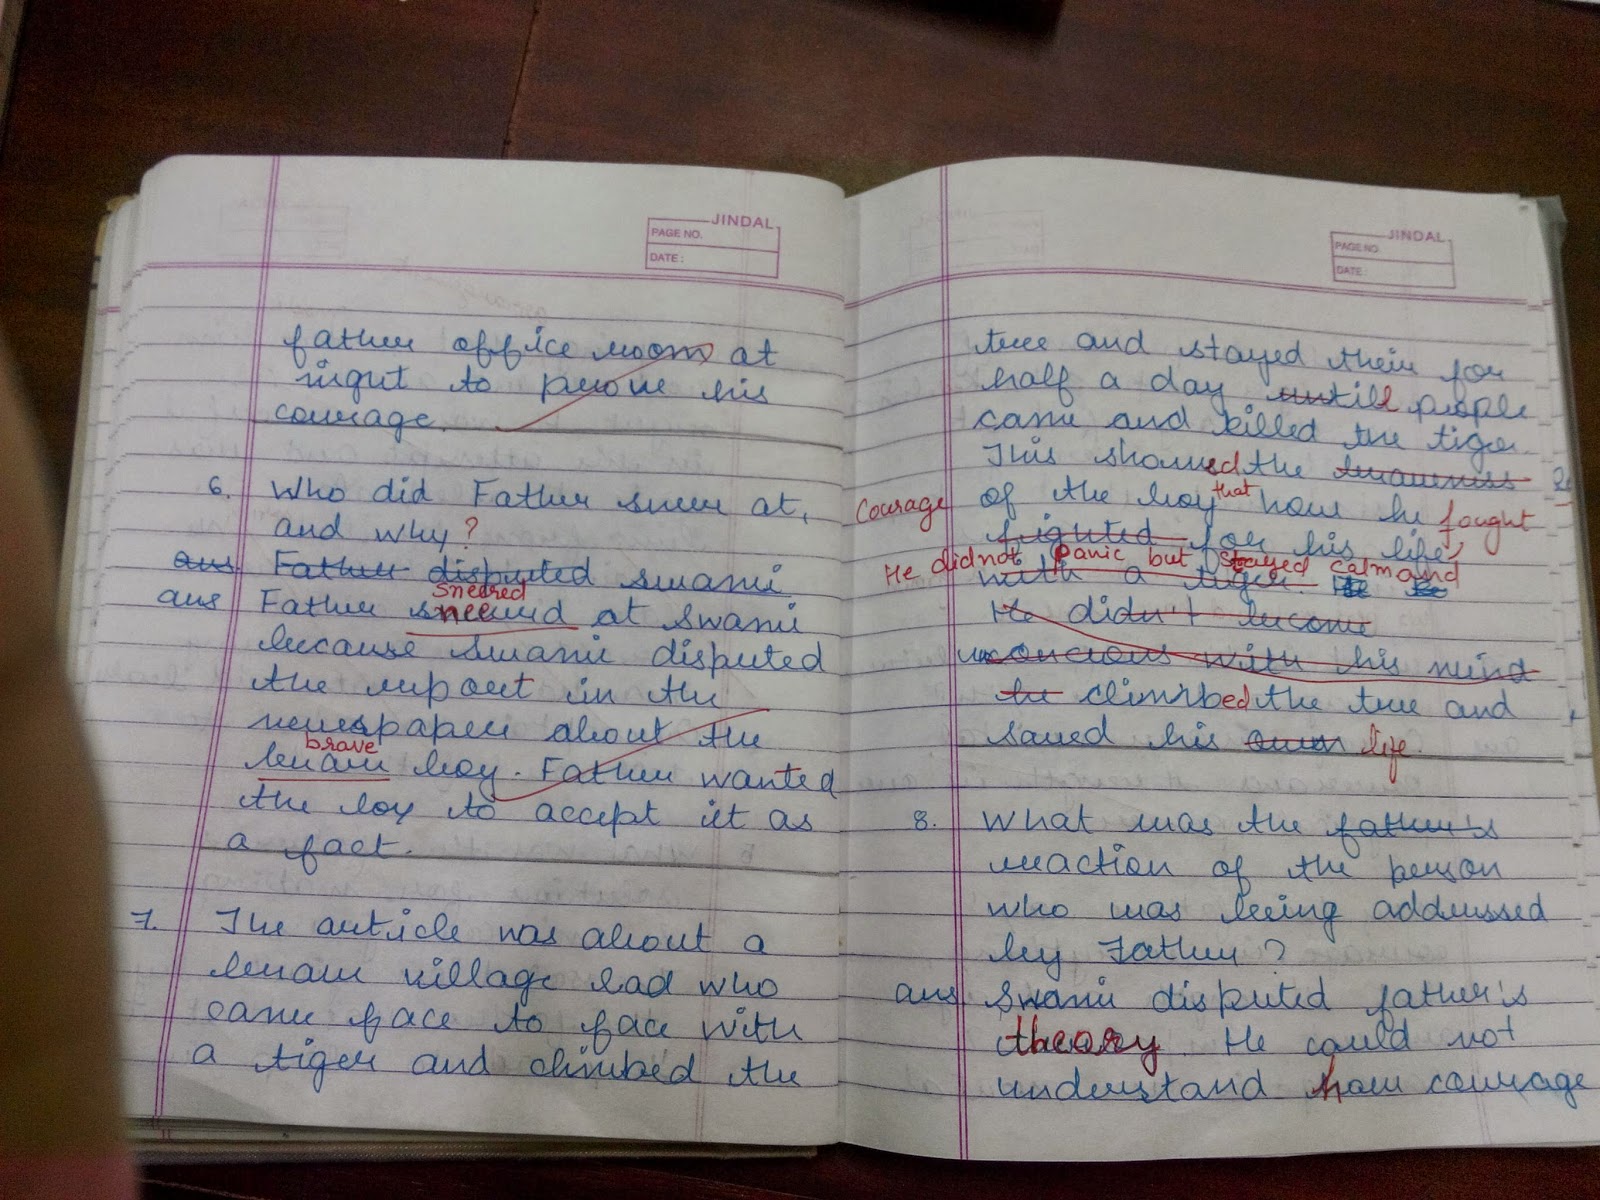 JINDAL
PAGE NO.
DATE:
father office room at
night to prove his
courage.
6. Who did Father sneer at,
and why?
ans. Father disputed swami
sneered
ans Father sneerd at Swami
because Swami disputed
the report in the
newspaper about the
brave
boy. Father wanted
the boy to accept it as
a fact.
7. The article was about a
village lad who
came face to face with
a tiger and climbed the
JINDAL
PAGE NO.
DATE:
tree and stayed their for
half a day untill people
came and killed the tiger.
This showed the
Courage of the boy that how he fought
fighted for his life,
He did not panic but stayed calm and
with a tiger.
He didn't become
with his mind
he climbed the tree and
saved his own life.
8. What was the father's
reaction of the person
who was being addressed
by Father?
ans Swami disputed father's
theory. He could not
understand how courage